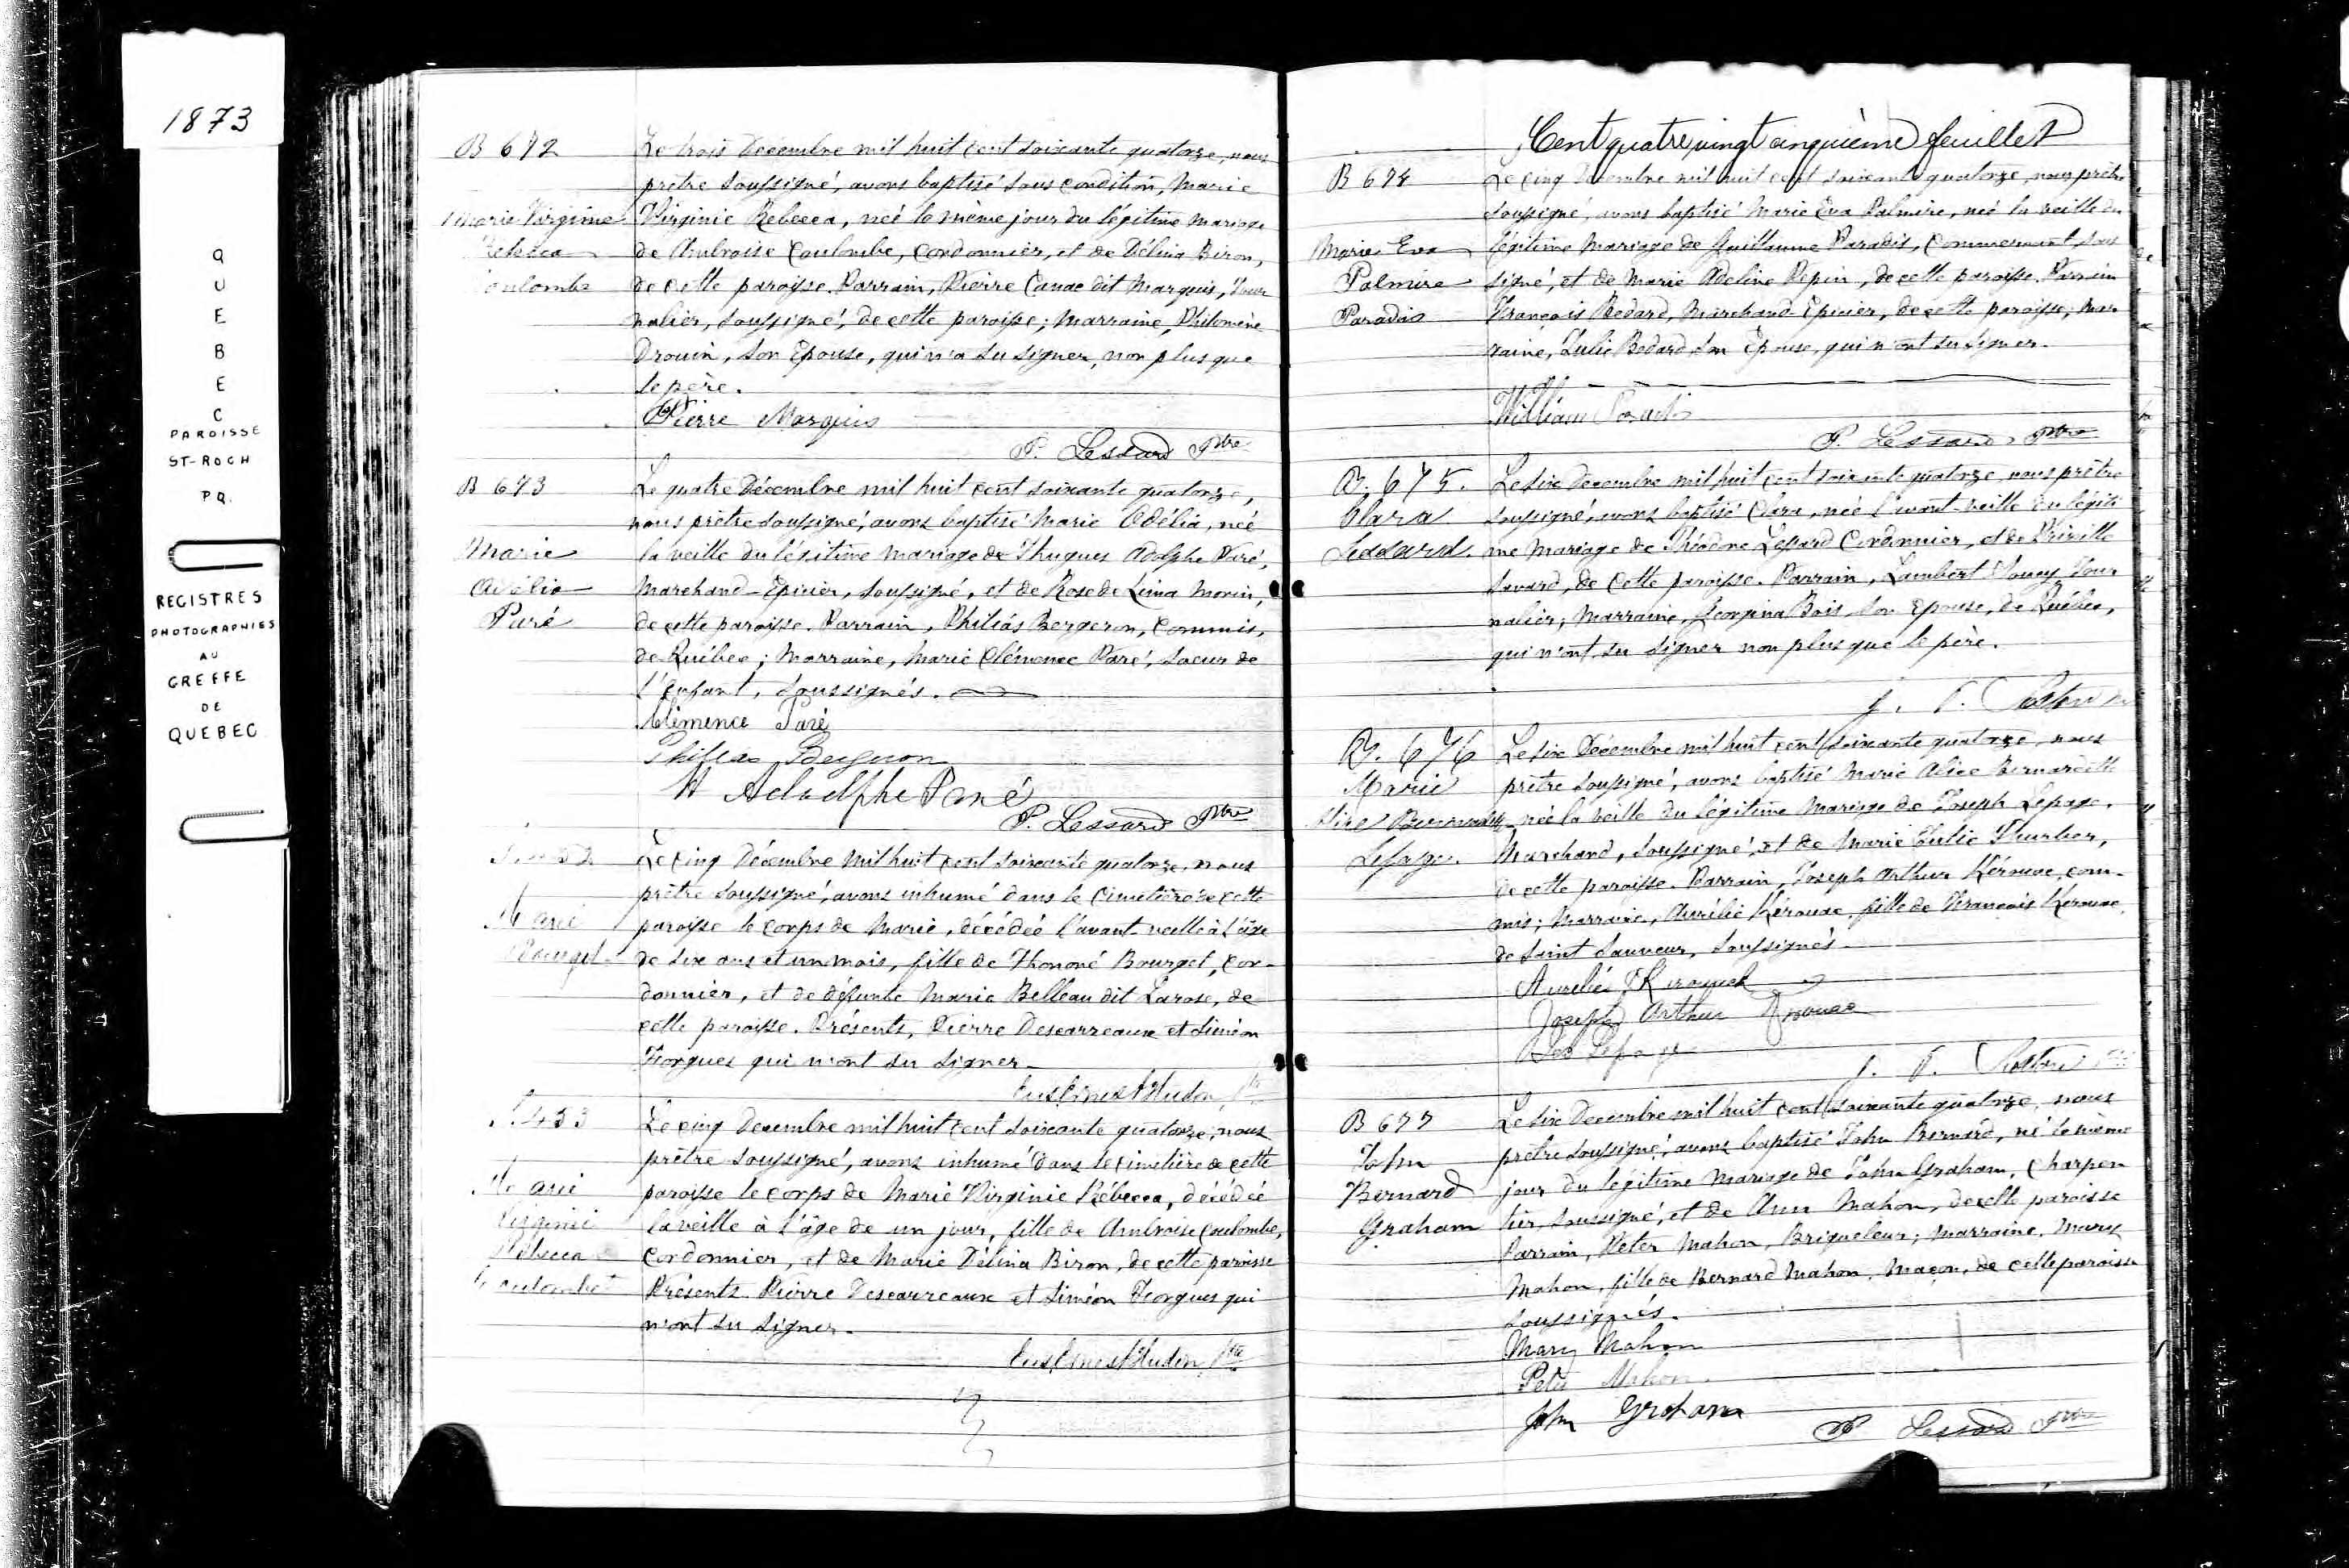 1873
QUEBEC
PAROISSE
ST-ROCH
PQ.
REGISTRES
PHOTOGRAPHIES
AU
GREFFE
DE
QUEBEC
B 672
Marie Virginie
Rebecca
Coulombe
Le trois Décembre mil huit cent soixante quatorze, nous
prêtre soussigné, avons baptisé sous condition, Marie
Virginie Rebecca, neé le même jour du légitime mariage
de Ambroise Coulombe, Cordonnier, et de Délina Biron,
de cette paroisse. Parrain, Pierre Canac dit Marquis, Jour
nalier, soussigné, de cette paroisse; Marraine, Philomène
Drouin, son Epouse, qui n'a su signer, non plus que
le père.
Pierre Marquis
P. Lessard Ptre
B 673
Marie
Adélia
Paré
Le quatre Décembre mil huit cent soixante quatorze,
nous prêtre soussigné, avons baptisé Marie Adélia, neé
la veille du légitime mariage de Hugues Adolphe Paré,
Marchand-Epicier, soussigné, et de Rose de Lima Morin,
de cette paroisse. Parrain, Philéas Bergeron, Commis,
de Québec; Marraine, Marie Clémence Paré, soeur de
l'Enfant, soussignés.
Clémence Paré
Phileas Bergeron
H Adolphe Paré
P. Lessard Ptre
Marie
Bourget
Le cinq Décembre mil huit cent soixante quatorze, nous
prêtre soussigné, avons inhumé dans le Cimetière de cette
paroisse le corps de Marie, décédée l'avant-veille à l'âge
de six ans et un mois, fille de Honoré Bourget, Cor-
donnier, et de défunte Marie Belleau dit Larose, de
cette paroisse. Présents, Pierre Descarreaux et Siméon
Forgues qui n'ont su signer.
Hudon Ptre
S. 453
Marie
Virginie
Rébecca
Coulombe
Le cinq Décembre mil huit cent soixante quatorze, nous
prêtre soussigné, avons inhumé dans le cimetière de cette
paroisse le corps de Marie Virginie Rébecca, décédée
la veille à l'âge de un jour, fille de Ambroise Coulombe,
Cordonnier, et de Marie Délina Biron, de cette paroisse
Présents Pierre Descarreaux et Siméon Forgues qui
n'ont su signer.
Hudon Ptre
Cent quatre vingt cinquième feuillet
B 674
Marie Eva
Palmire
Paradis
Le cinq Décembre mil huit cent soixante quatorze, nous prêtre
soussigné, avons baptisé Marie Eva Palmire, neé la veille du
légitime mariage de Guillaume Paradis, Commercant, sous
signé, et de Marie Adeline Pepin, de cette paroisse. Parrain
François Bedard, Marchand Epicier, de cette paroisse; Mar
raine, Julie Bedard, son Epouse, qui n'ont su signer.
William Paradis
P. Lessard Ptre
B. 675.
Clara
Lessard
Le six Décembre mil huit cent soixante quatorze, nous prêtre
soussigné, avons baptisé Clara, née l'avant-veille du légiti
me mariage de Théodore Lessard Cordonnier, et de
Savard, de cette paroisse. Parrain, Lambert Jour
nalier; Marraine, Georgina Bois, son Epouse, de Québec,
qui n'ont su signer non plus que le père.
B. 676
Marie
Alice Bernardette
Lepage
Le six Décembre mil huit cent soixante quatorze, nous
prêtre soussigné, avons baptisé Marie Alice Bernardette
née la veille du légitime mariage de Joseph Lepage,
Marchand, soussigné, et de Marie Julie Thurber,
de cette paroisse. Parrain, Joseph Arthur Kérouac, com-
mis; Marraine, Aurélie Kérouac, fille de François Kerouac
de Saint Sauveur, soussignés.
Aurélie Kirouack
Joseph Arthur Kirouac
Lepage
B 677
John
Bernard
Graham
Le six Decembre mil huit cent soixante quatorze, nous
prêtre soussigné, avons baptisé John Bernard, né le même
jour du légitime mariage de John Graham, Charpen
tier, soussigné, et de Ann Mahon, de cette paroisse
Parrain, Peter Mahon, Briqueleur; Marraine, Mary
Mahon, fille de Bernard Mahon, Maçon, de cette paroisse
soussignés.
Mary Mahon
Peter Mahon
John Graham
P Lessard Ptre